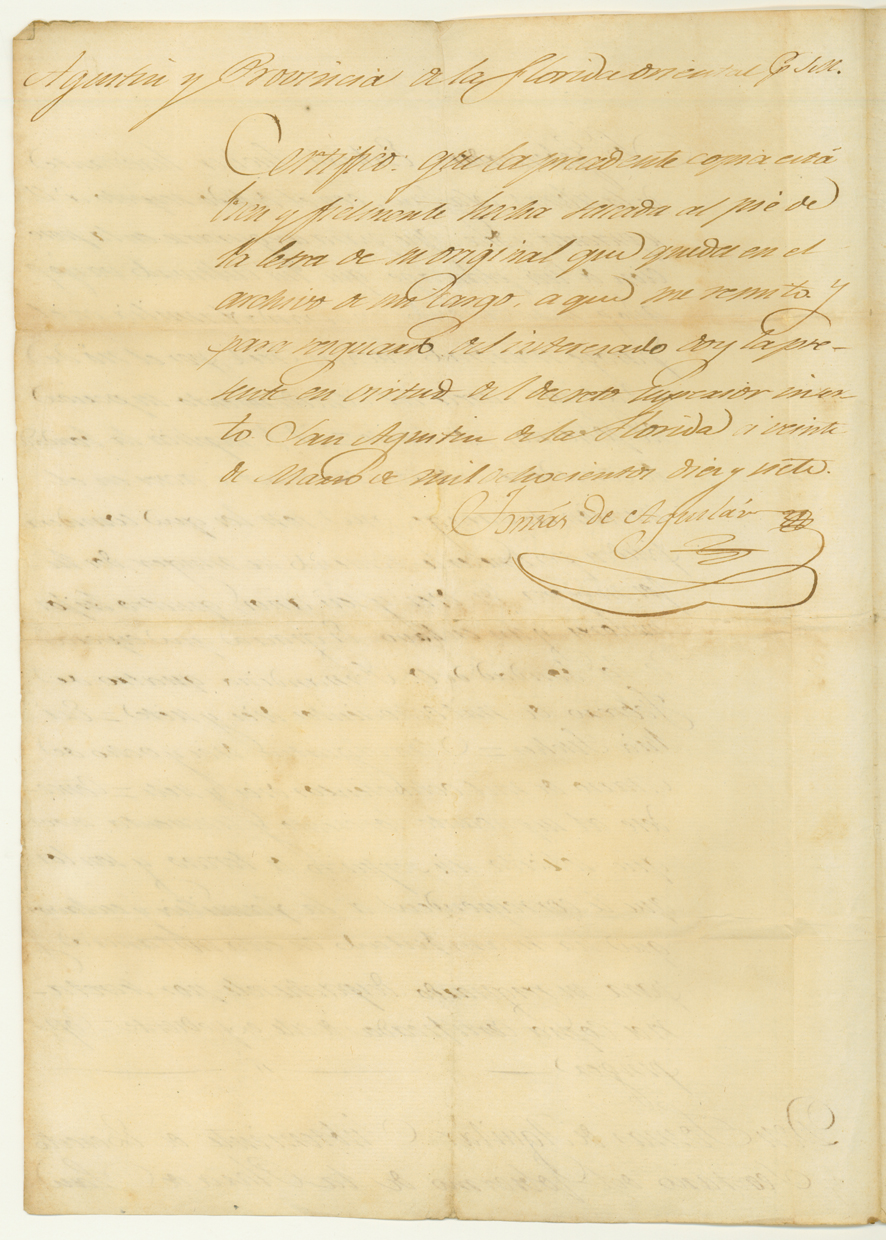 Agustin y Provincia de la Florida oriental p. S. M.
Certifico: que la precedente copia está
bien y fielmente hecha sacada al pie de
la letra de su original que queda en el
archivo de mi cargo, a que me remito y
para resguardo del interesado doy la pre-
sente en virtud del decreto superior inser-
to San Agustin de la Florida a veinte
de Marzo de mil ochocientos diez y siete.
Tomás de Aguilár